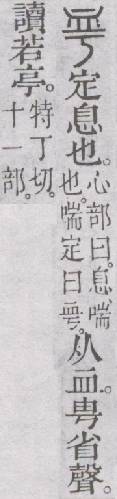 定息也。心部曰。息、喘也。喘定曰。从血。甹省聲。
讀若亭。特丁切。十一部。